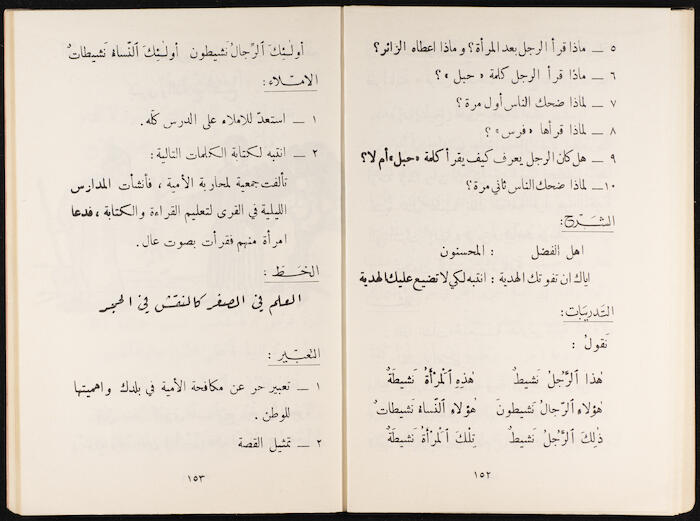 ٥ ـ ماذا قرأ الرجل بعد المرأة؟ وماذا اعطاه الزائر؟
٦ ـ ماذا قرأ الرجل كلمة « حبل »؟
٧ ـ لماذا ضحك الناس أول مرة؟
٨ ـ لماذا قرأها « فرس » ؟
٩ ـ هل كان الرجل يعرف كيف يقرأ كلمة «حبل» أم لا؟
١٠ ـ لماذا ضحك الناس ثاني مرة؟
الشرح :
اهل الفضل : المحسنون
اياك ان تفوتك الهدية : انتبه لكي لا تضيع عليك الهدية
التدريبات :
نَقولُ :
هٰذا ٱلرَّجُلُ نَشيطٌ هٰذِهِ ٱلْمَرْأَةُ نَشيطَةٌ
هٰؤلاءِ ٱلرِّجالُ نَشيطونَ هٰؤلاءِ ٱلنِّساءُ نَشيطاتٌ
ذٰلِكَ ٱلرَّجُلُ نَشيطٌ تِلْكَ ٱلْمَرْأَةُ نَشيطَةٌ
١٥٢
أولٰئِكَ ٱلرِّجالُ نَشيطون أولٰئِكَ ٱلنِّساءُ نَشيطاتٌ
الامتلاء :
١ ـ استعدّ للاملاء على الدرس كلّه .
٢ ـ انتبه لكتابة الكلمات التالية :
تألفت جمعية لمحاربة الأمية ، فأنشأت المدارس
الليلية في القرى لتعليم القراءة والكتابة ، فدعا
امرأة منهم فقرأت بصوت عال .
الخط :
العلم في الصغر كالنقش في الحجر
التعبير :
١ ـ تعبير حر عن مكافحة الأمية في بلدك واهميتها
للوطن .
٢ ـ تمثيل القصة
١٥٣